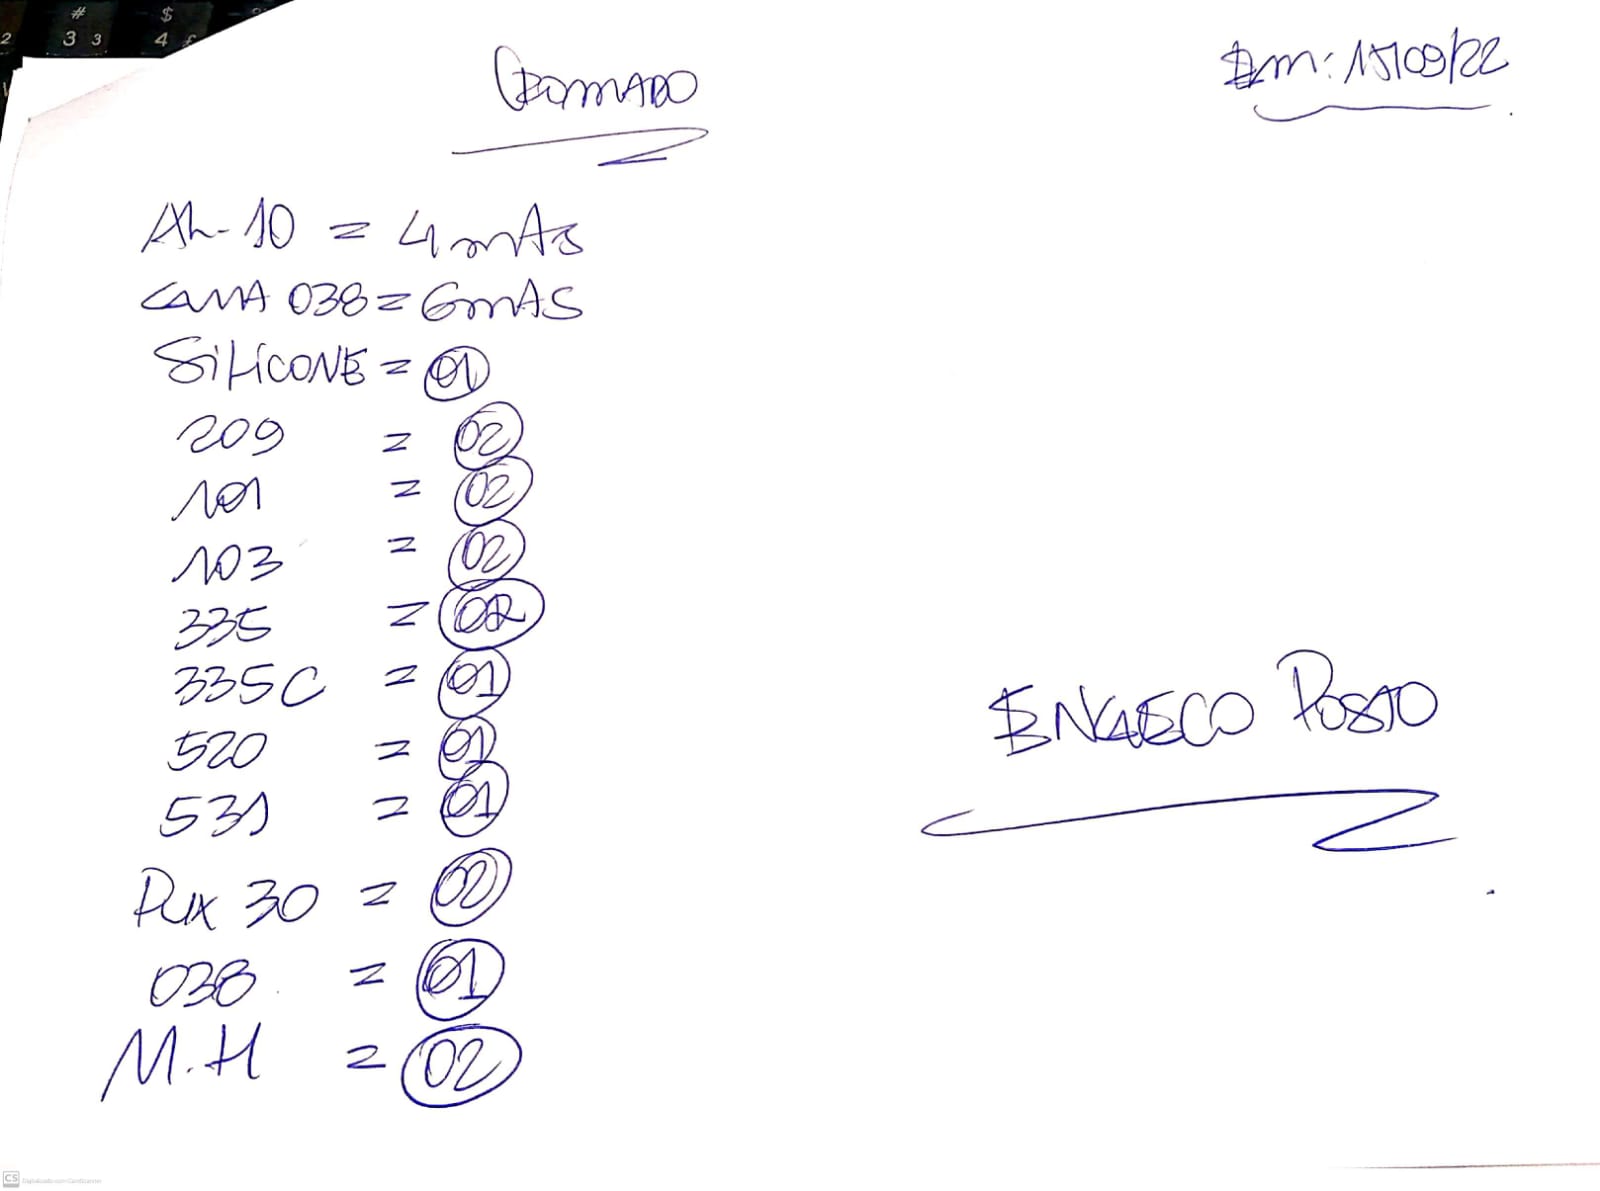 CROMADO
Em: 15/09/22
AL-10 = 4 mAs
CAMA 038 = 6 mAS
SiLiCONE = 01
209 = 02
101 = 02
103 = 02
335 = 02
335C = 01
520 = 01
531 = 01
ENGECO POSTO
PUX 30 = 02
038 = 01
M.H = 02
CS Digitalizado com CamScanner